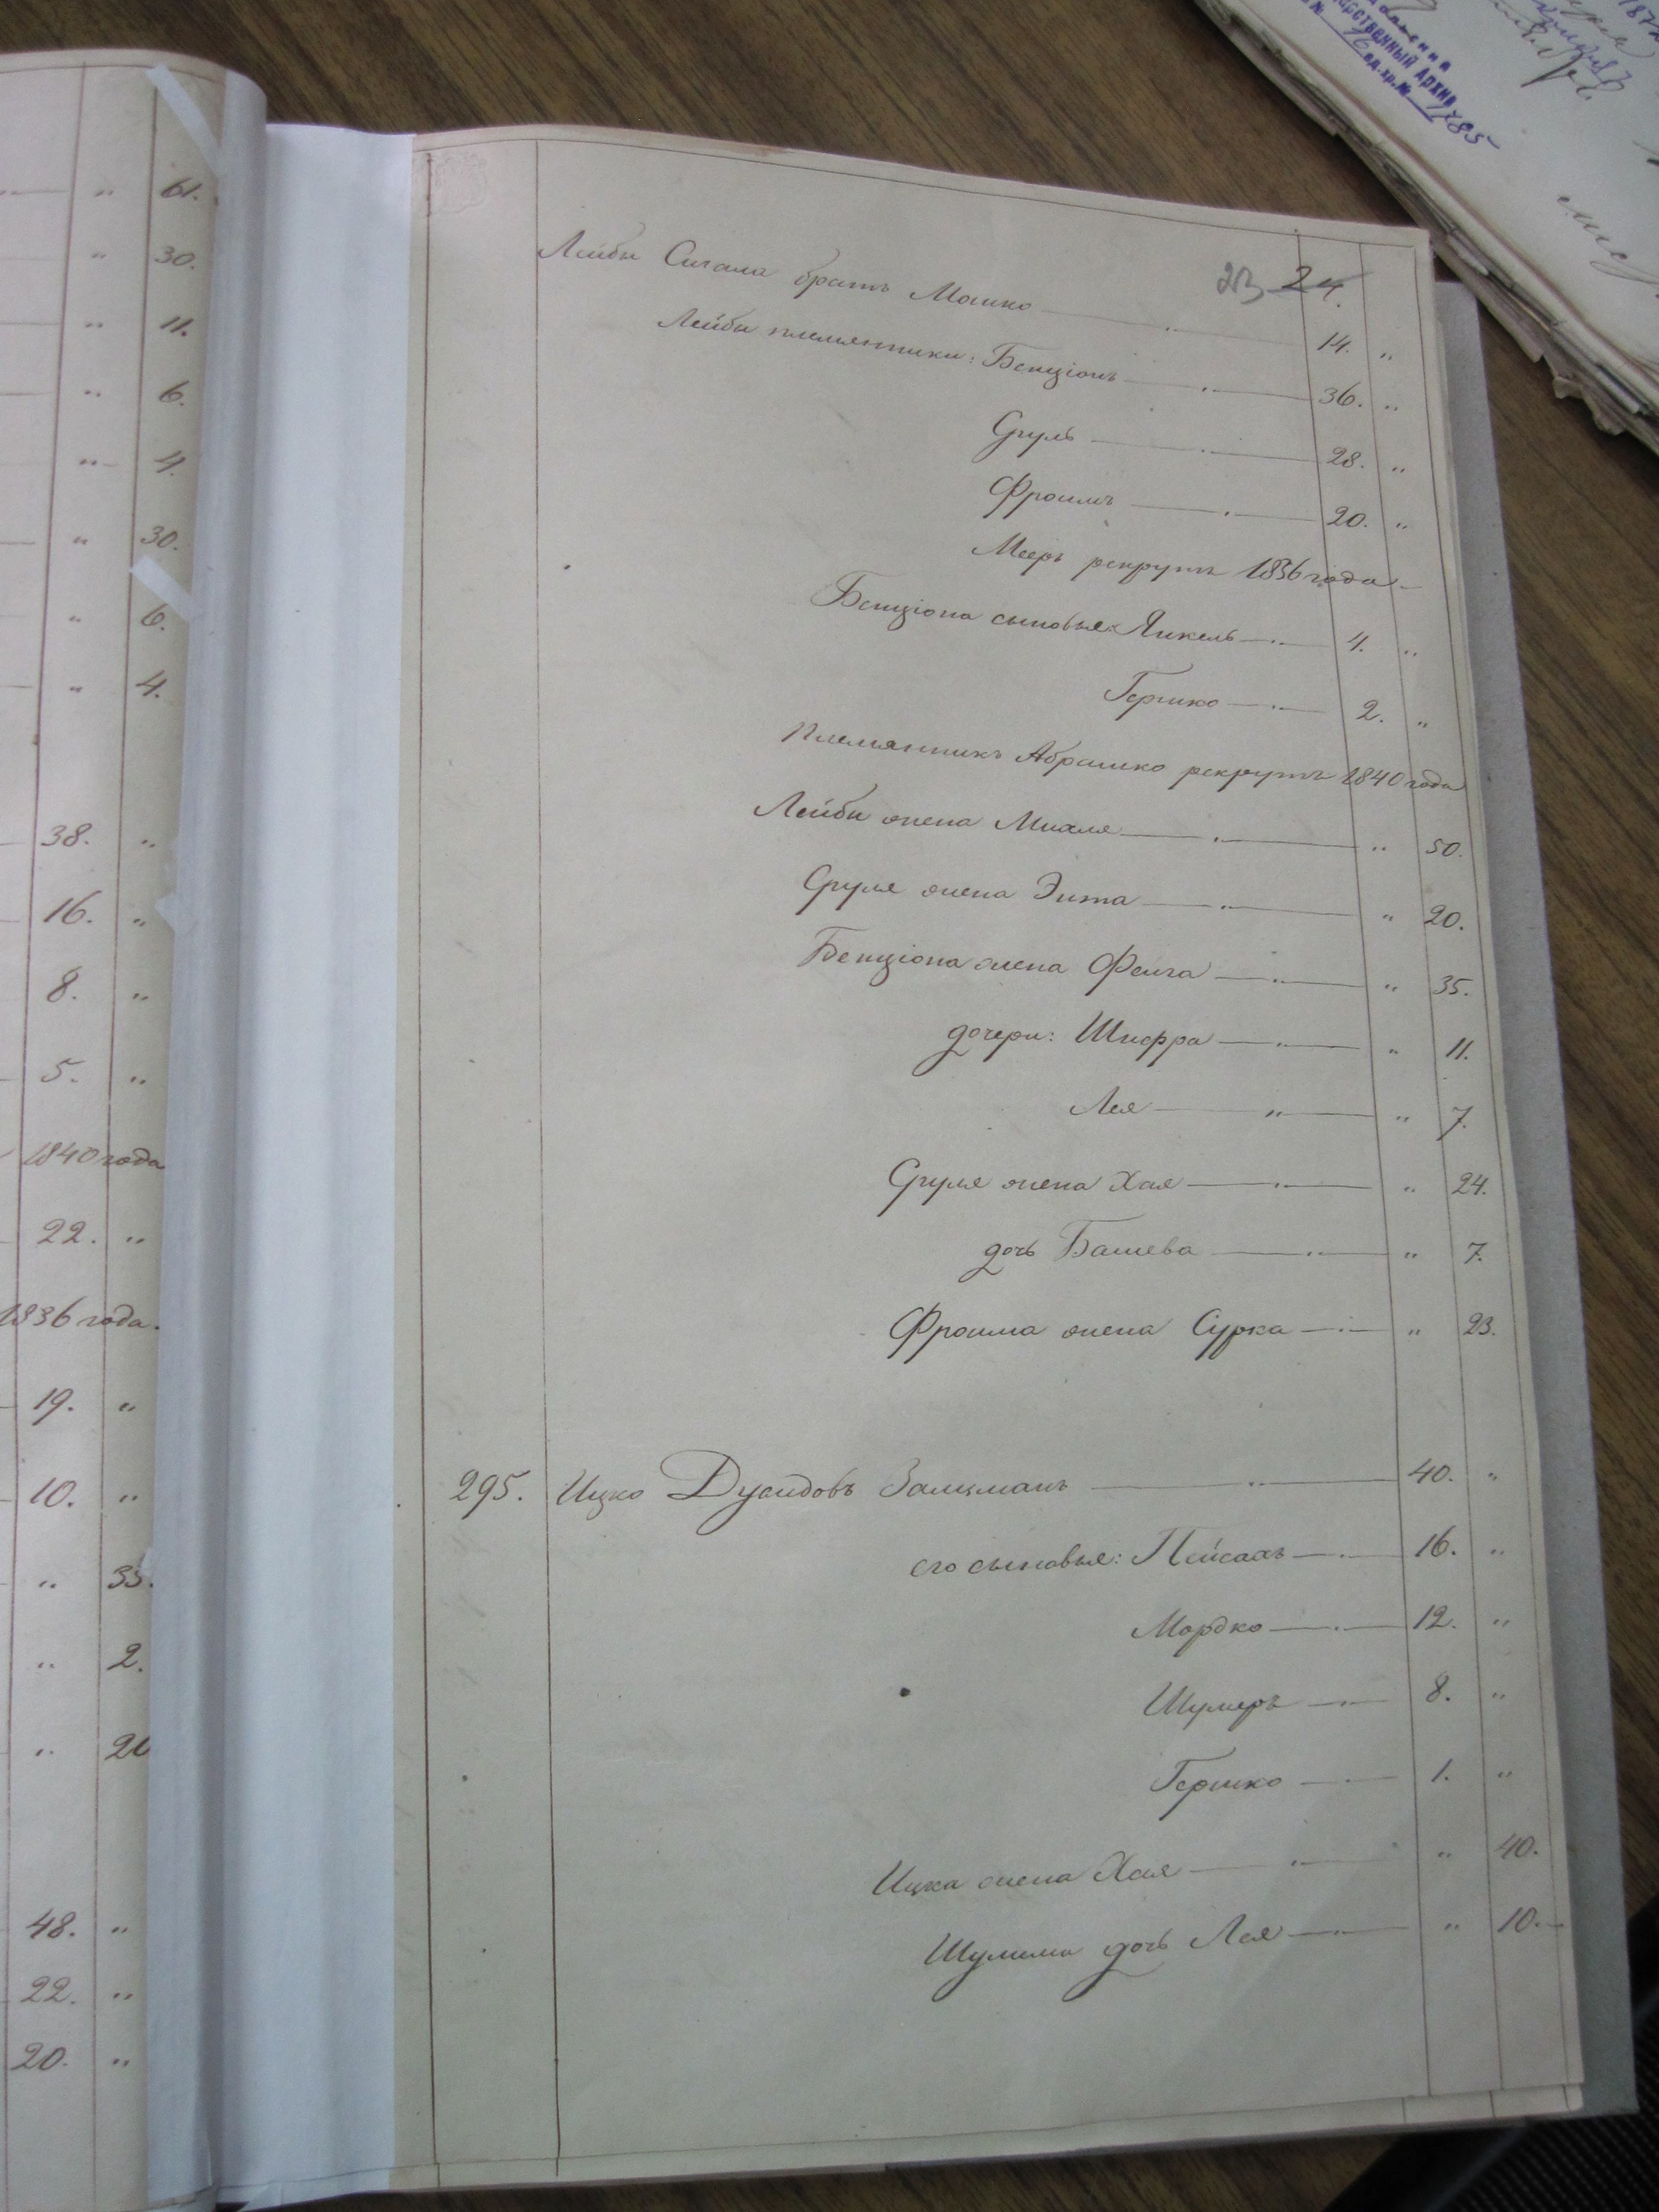 61.
30.
11.
6.
4.
30.
6.
4.
38.
16.
8.
5.
1840 года
22.
1836 года.
19.
10.
33.
2.
20
48.
22.
20.
23 24.
Лейбы Сигала братъ Мошко 14. "
Лейбы племянники: Бенціонъ 36. "
Сруль 28. "
Фроимъ 20. "
Мееръ рекрутъ 1836 года
Бенціона сыновья: Янкель 4. "
Гершко 2. "
Племянникъ Абрашко рекрутъ 1840 года
Лейбы жена Михля " 50.
Сруля жена Энта " 20.
Бенціона жена Фейга " 35.
дочери: Шифра " 11.
Лея " 7.
Сруля жена Хая " 24.
дочь Башева " 7.
Фроима жена Сурка " 23.
295. Ицко Дувидовъ Залцманъ 40. "
его сыновья: Пейсахъ 16. "
Мордко 12. "
Шулимъ 8. "
Гершко 1. "
Ицка жена Хая " 40.
Шулима дочь Лея " 10.
АРСТВЕННЫЙ АРХИВ
ед. хр. № 785